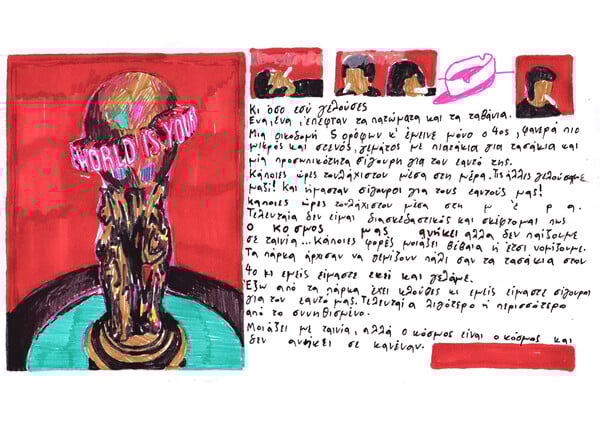 WORLD IS YOUR
Κι όσο εσύ γελούσες
Ένα, ένα, έπεφταν τα πατώματα και τα ταβάνια.
Μια οικοδομή 5 ορόφων κ' έμεινε μόνο ο 4ος, φανερά πιο
μικρός και στενός, γεμάτος με πιατάκια για τασάκια και
μία προσωπικότητα σίγουρη για τον εαυτό της.
Κάποιες ώρες τουλάχιστον μέσα στη μέρα. Τις άλλες γελούσαμε
μαζί! Και ήμασταν σίγουροι για τους εαυτούς μας!
κάποιες ώρες τουλάχιστον μέσα στη μ έ ρ α.
Τελευταία δεν είμαι διασκεδαστικός και σκέφτομαι πως
Ο κόσμος μας ανήκει αλλά δεν παίζουμε
σε ταινία... Κάποιες φορές μοιάζει βέβαια ή έτσι νομίζουμε.
Τα πάρκα άρχισαν να γεμίζουν πάλι σαν τα τασάκια στον
4ο κι εμείς είμαστε εκεί και γελάμε.
Έξω από τα πάρκα έχει κλούβες κι εμείς είμαστε σίγουροι
για τον εαυτό μας. Τελευταία λιγότερο ή περισσότερο
από το συνηθισμένο.
Μοιάζει με ταινία, αλλά ο κόσμος είναι ο κόσμος και
δεν ανήκει σε κανέναν.